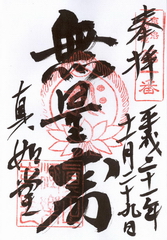 奉拝
平成二十一年
十一月二十九日
無量寿
真如堂